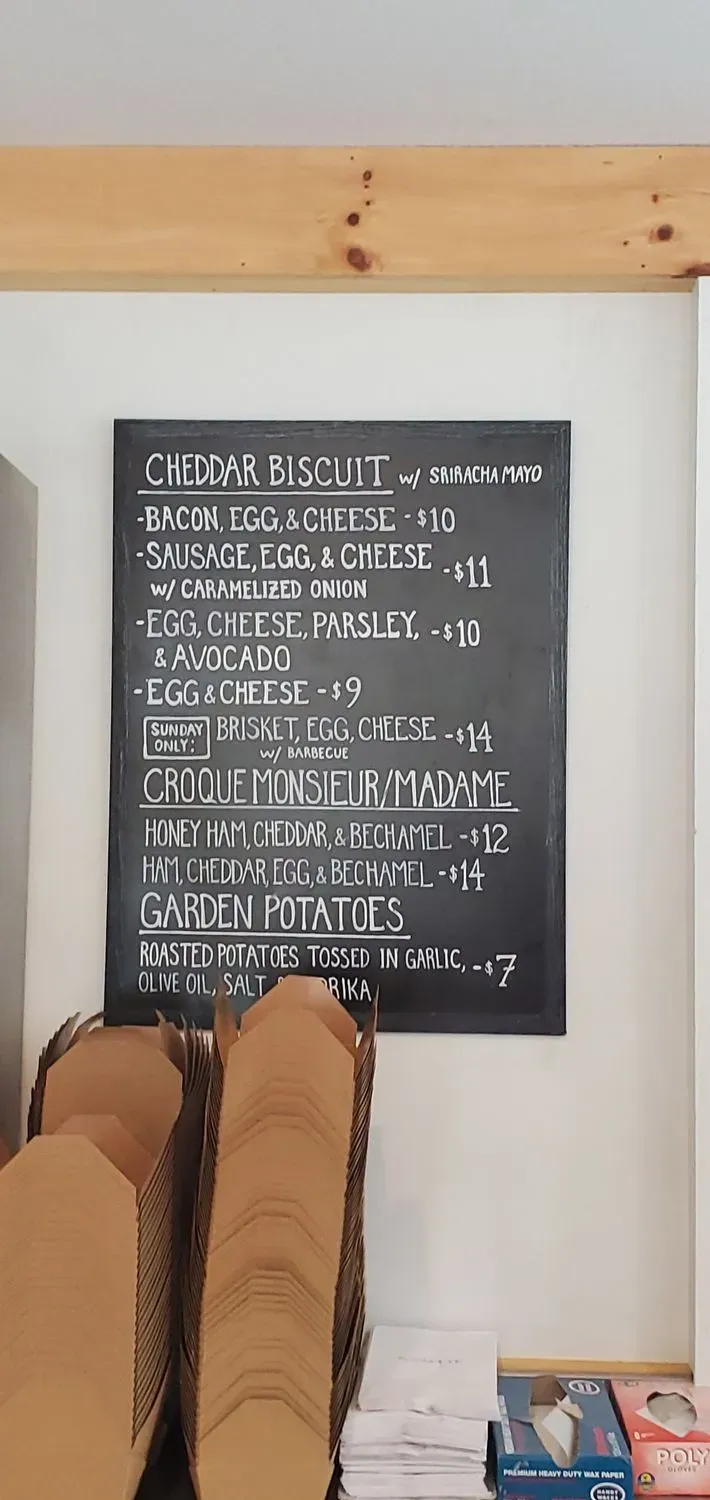 CHEDDAR BISCUIT w/ SRIRACHA MAYO
-BACON, EGG, & CHEESE - $10
-SAUSAGE, EGG, & CHEESE - $11
w/ CARAMELIZED ONION
-EGG, CHEESE, PARSLEY, - $10
& AVOCADO
-EGG & CHEESE - $9
SUNDAY ONLY: BRISKET, EGG, CHEESE - $14
w/ BARBECUE
CROQUE MONSIEUR/MADAME
HONEY HAM, CHEDDAR, & BECHAMEL - $12
HAM, CHEDDAR, EGG, & BECHAMEL - $14
GARDEN POTATOES
ROASTED POTATOES TOSSED IN GARLIC, - $7
OLIVE OIL, SALT
PREMIUM HEAVY DUTY WAX PAPER
HANDY WACKS
POLY
GLOVES